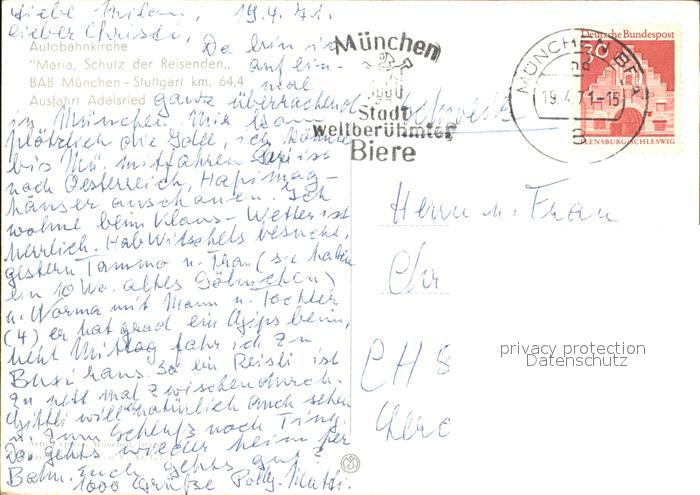 Liebe 19.4.71.
lieber Christi,
Autobahnkirche
"Maria, Schutz der Reisenden"
BAB München - Stuttgart km. 64,4
Ausfahrt Adelsried
Da bin ich
auf ein-
mal
ganz überraschend
in München. Mir kam
plötzlich die Idee, ich könne
bis Mü. mitfahren ist
nach Oesterreich, Hapimag-
häuser anschauen. Ich
wohne beim Klaus - Wetter ist
herrlich. Hab Witschels besucht,
gestern Tammo u. Frau (sie haben
ein 10 Wo. altes Söhnchen)
u. Norma mit Mann u. Tochter
(4) er hat grad ein Gipsbein,
heut Mittag fahr ich zu
So ein Reisli ist
zu nett mal zwischendurch.
will natürlich auch sehen
u. zum Schluß nach
Dan gehts wieder heim per
Bahn. Euch gehts gut?
1000 Grüße Polly-Mutti.
München
Stadt
weltberühmter
Biere
MÜNCHEN BP
19.4.71-15
Deutsche Bundespost
30
FLENSBURG/SCHLESWIG
Schweiz
Herrn u. Frau
Chr
CH 8
privacy protection
Datenschutz